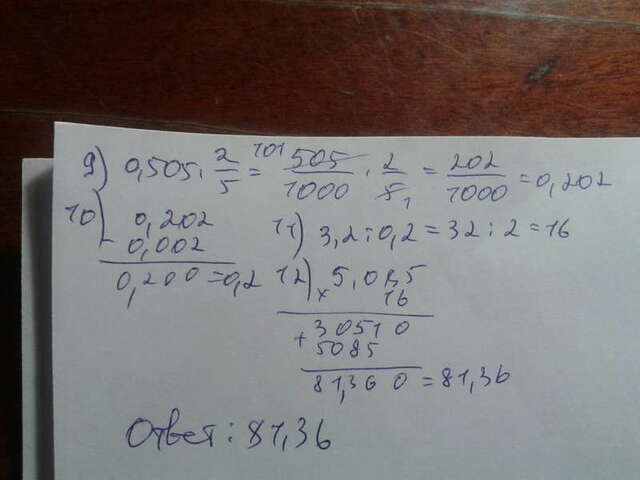 9) 0,505 · 2/5 = 101 505/1000 · 2/5 1 = 202/1000 = 0,202
10) 0,202
- 0,002
0,200 = 0,2
11) 3,2 : 0,2 = 32 : 2 = 16
12) 5,085
× 16
+ 30510
5085
81,360 = 81,36
Ответ: 81,36